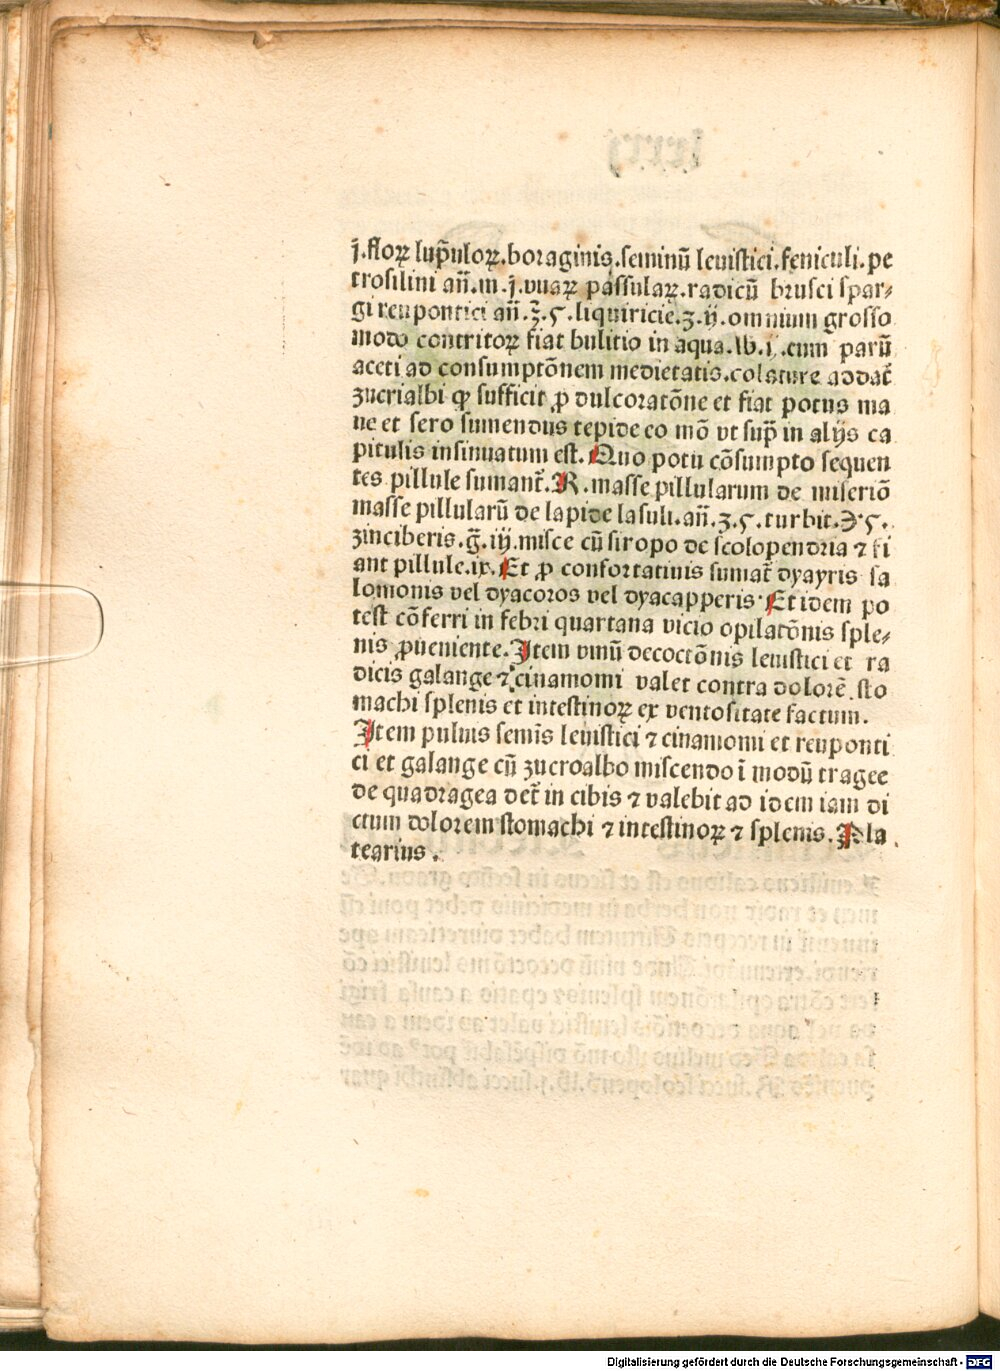 j̄.floꝝ lup̄uloꝝ.boraginis.seminū leuistici.feniculi.pe
trosilini an̄.m.j̄.vuaꝝ passulaꝝ.radicū brusci spar⸗
gi reupontici an̄.ʒ̄.ς.liquiricie.ʒ.ij.omnium grosso
modo contritoꝝ fiat bulitio in aqua.lb.ij.cum parū
aceti ad consumptōnem medietatis.colature addat̄
zucrialbi qƺ sufficit ꝓ dulcoratōne et fiat potus ma
ne et sero sumendus tepide eo mō vt sup̄ in alijs ca
pitulis insinuatum est. Quo potu cōsumpto sequen
tes pillule sumant̄.R.masse pillularum de miseriō
masse pillularū de lapide lasuli.an̄.ʒ.ς.turbit.℈ς.
zinciberis.ḡ.iij.misce cū siropo de scolopendria ⁊ fi
ant pillule.ix.Et ꝓ confortatiuis sumat̄ dyayris sa
lomonis vel dyacoros vel dyacapperis·Et idem po
test cōferri in febri quartana vicio opilatōnis sple⸗
nis ꝓueniente.Item vinū decoctōnis leuistici et ra
dicis galange ⁊ cinamomi valet contra dolorē sto
machi splenis et intestinoꝝ ex ventositate factum.
Item puluis semīs leuistici ⁊ cinamomi et reuponti
ci et galange cū zucroalbo miscendo ī modū tragee
de quadragea det̄ in cibis ⁊ valebit ad idem iam di
ctum dolorem stomachi ⁊ intestinoꝝ ⁊ splenis.Pla
tearius.
Digitalisierung gefördert durch die Deutsche Forschungsgemeinschaft - DFG